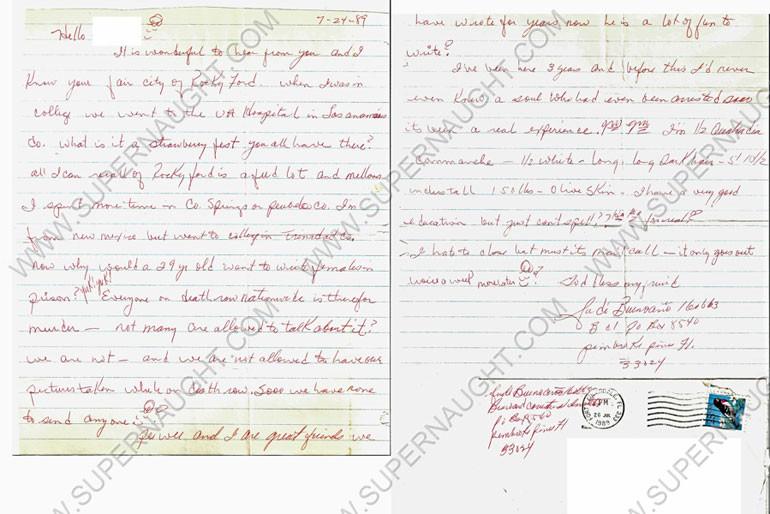 7-24-89
Hello
It is wonderful to hear from you and I
Know your fair city of Rocky Ford when I was in
college we went to the VA Hospital in Las animas
Co. what is it a strawberry fest you all have there?
all I can recall of Rocky ford is a feed lot and mellons
I spent more time in Co Springs or pueblo co. Im
from new mexico but went to college in Trinidad Co.
now why would a 29 yr old want to write females in
prison? Everyone on death row nationwide is there for
murder — not many are allowed to talk about it?
we are not — and we are not allowed to have our
pictures taken while on death row. Sooo we have none
to send anyone
and I are great friends we
have wrote for years now he is a lot of fun to
write?
I've been here 3 years and before this I'd never
even knew a soul who had even been arrested sooo
its been a real experience. I'm 1/2
Commanche — 1/2 white — long, long dark hair — 5'
inches tall 150 lbs — Olive Skin. I have a very good
education but just can't spell, ? for real?
I hate to close but must its mail call — it only goes out
God bless
Judi Buenoaño 160663
B c I Po Box 8540
pembroke pines Fl.
33024
Judi Buenoaño
Broward
Po Box 8540
pembroke pines Fl
33024
PM
26 JUL
1989
WWW.SUPERNAUGHT.COM
WWW.SUPERNAUGHT.COM
WWW.SUPERNAUGHT.COM
WWW.SUPERNAUGHT.COM